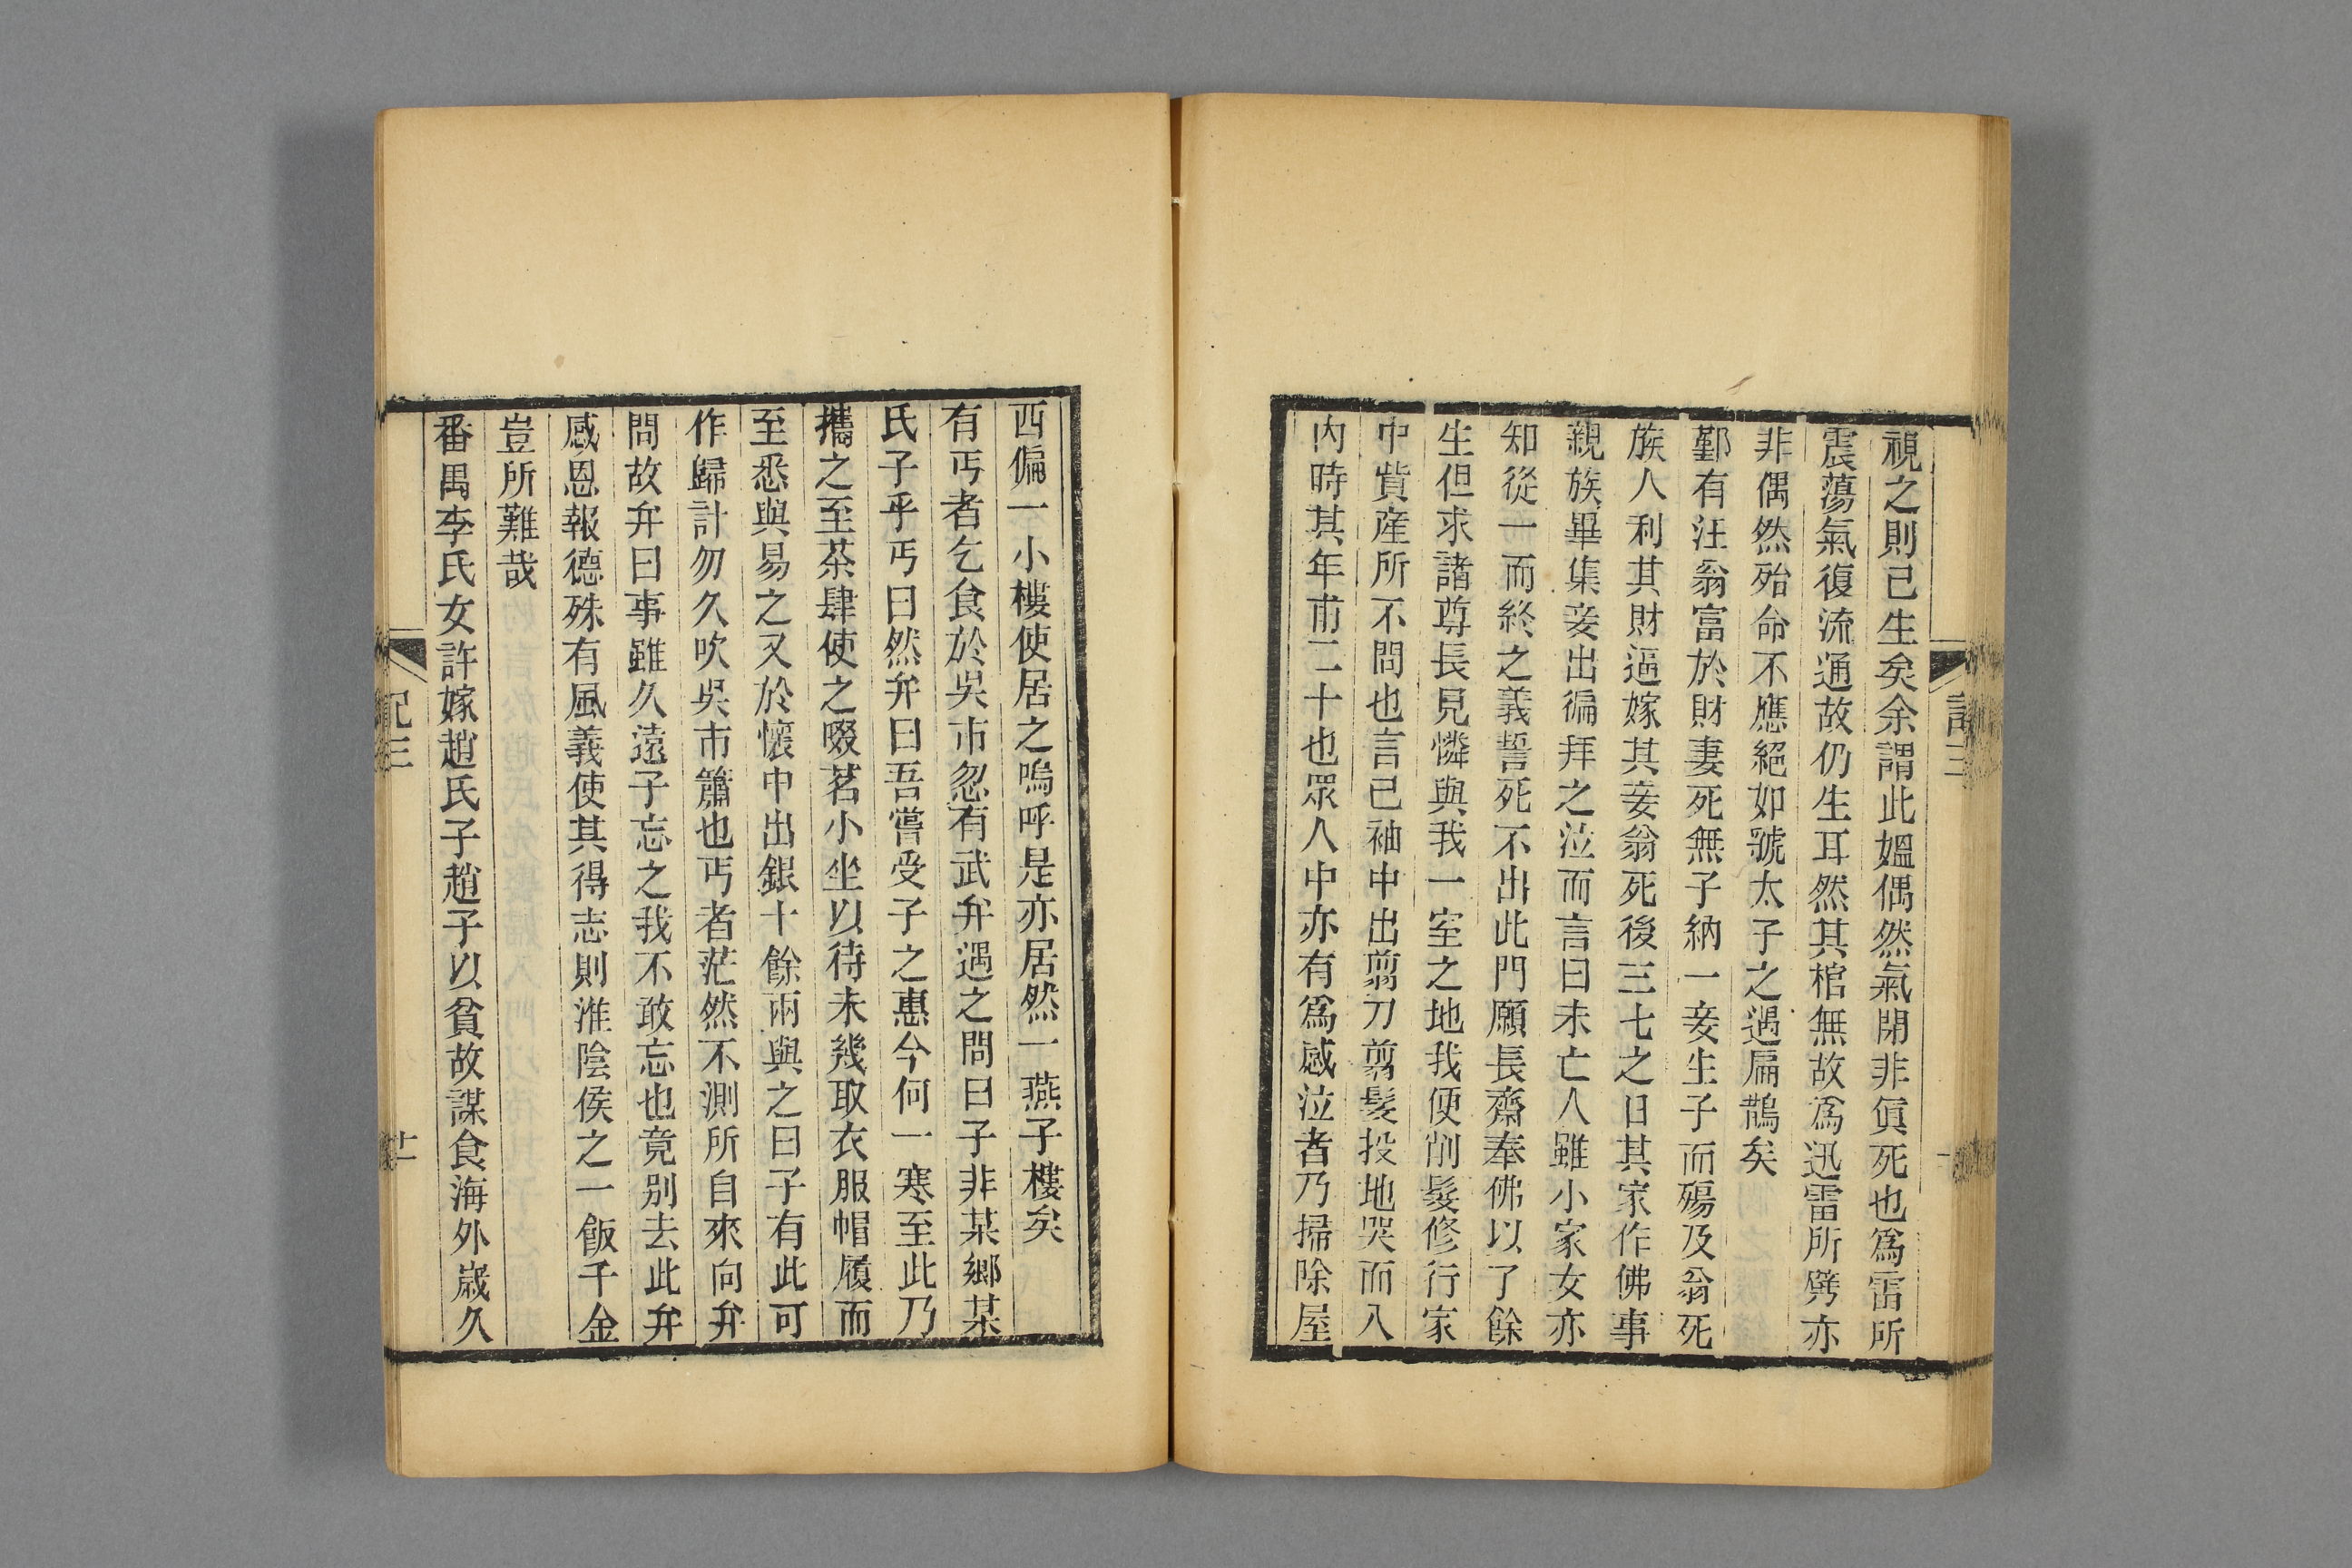 視之則已生矣余謂此媼偶然氣閉非眞死也爲雷所
震蕩氣復流通故仍生耳然其棺無故爲迅雷所劈亦
非偶然殆命不應絕如虢太子之遇扁鵲矣
鄞有汪翁富於財妻死無子納一妾生子而殤及翁死
族人利其財逼嫁其妾翁死後三七之日其家作佛事
親族畢集妾出徧拜之泣而言曰未亡人雖小家女亦
知從一而終之義誓死不出此門願長齋奉佛以了餘
生但求諸尊長見憐與我一室之地我便削髮修行家
中貲產所不問也言已袖中出翦刀翦髮投地哭而入
內時其年甫二十也眾人中亦有爲感泣者乃掃除屋
西偏一小樓使居之嗚呼是亦居然一燕子樓矣
有丐者乞食於吳市忽有武弁遇之問曰子非某鄉某
氏子乎丐曰然弁曰吾嘗受子之惠今何一寒至此乃
攜之至茶肆使之啜茗小坐以待未幾取衣服帽履而
至悉與易之又於懷中出銀十餘兩與之曰子有此可
作歸計勿久吹吳市簫也丐者茫然不測所自來向弁
問故弁曰事雖久遠子忘之我不敢忘也竟別去此弁
感恩報德殊有風義使其得志則淮陰侯之一飯千金
豈所難哉
番禺李氏女許嫁趙氏子趙子以貧故謀食海外歲久
記三